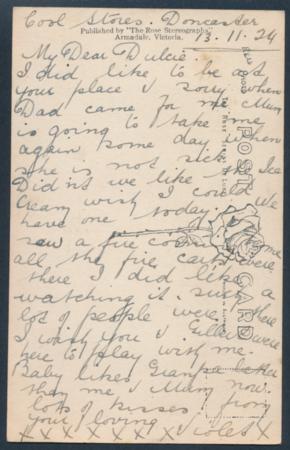 Cool Stores. Doncaster
Published by "The Rose Stereographs"
Armadale, Victoria.
13. 11. 24
My Dear Dulcie
I did like to be at
your place & sorry when
Dad came for me Mum
is going to take me
again some day when
she is not sick
Didn't we like the Ice
Cream wish I could
have one today. We
saw a fire coming home
all the fire carts were
there I did like
watching it. such a
lot of people were there
I wish you & Eileen were
here to play with me.
Baby likes Granpa better
than me & Mum now.
lots of kisses from
your loving
X X X X X X X X X
POST CARD